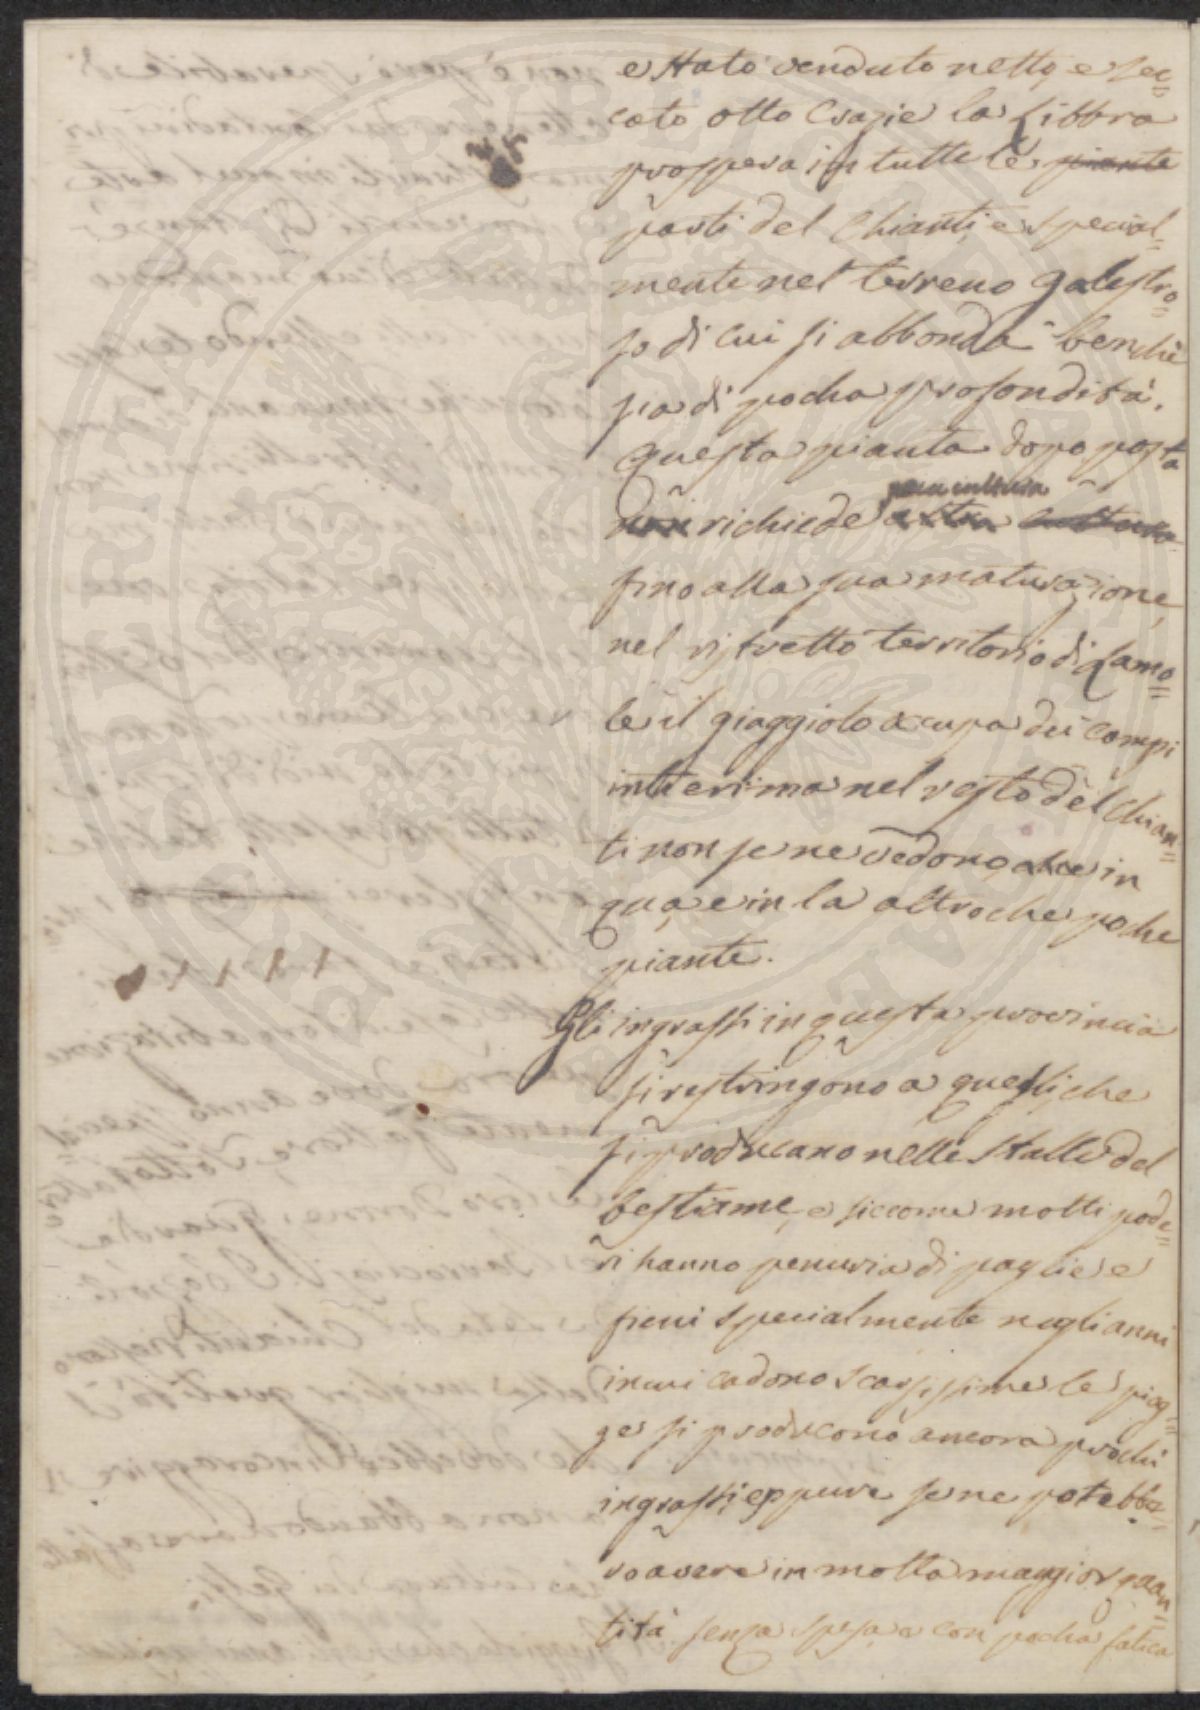 e stato venduto netto, e sec=
cato otto Crazie la Libbra
prospera in tutte le piante
parti del Chianti e special=
mente nel terreno galestro=
so di cui si abbonda benchè
sia di pocha profondità.
Questa pianta dopo posta
non richiede poca cultura altra cultura
fino alla sua maturazione,
nel ristretto territorio di Lamo=
le il giaggiolo occupa dei campi
intieri ma nel resto del Chian=
ti non se ne vedono che in
qua, e in la altro che poche
piante.
Gli ingrassi in questa provincia
si restringono a quegli, che
si producano nelle stalle dal
bestiame, e siccome molti pode=
ri hanno penuria di paglie e
fieni specialmente negli anni
in cui cadono scarsissime le piog=
ge si producono ancora pochi
ingrassi, eppure se ne potebbe=
ro avere in molta maggior quan=
tità senza spesa e con pocha fatica